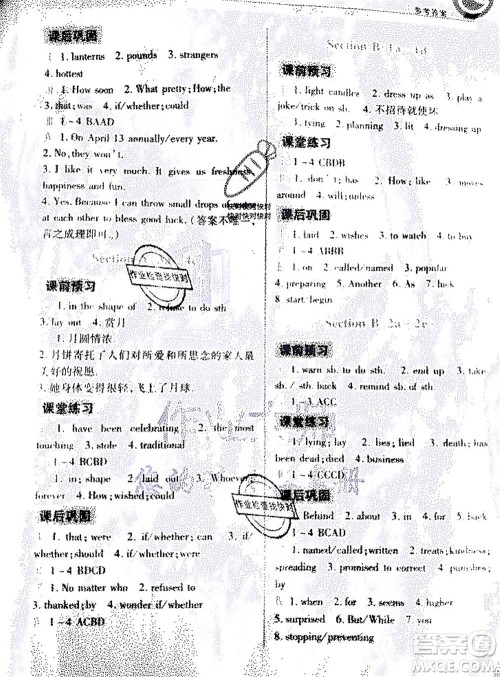 参考答案
课后巩固
Ⅰ 1. lanterns  2. pounds  3. strangers
4. hottest
Ⅱ 1. How soon  2. What pretty; How
3. that; was  4. if/whether; could
Ⅲ 1-4 BAAD
Ⅳ 1. On April 13 annually/every year.
2. No, they won't.
3. I like it very much. It gives us freshness, happiness and fun.
4. Yes. Because I can throw small drops
at each other to bless good luck. (答案不唯一,
言之成理即可。)
课前预习
1. in the shape of  2. refuse to do sth.
3. lay out  4. 赏月
1. 月圆情浓。
2. 月饼寄托了人们对所爱和所思念的家人最
美好的祝愿。
3. 她身体变得很轻,飞上了月球。
课堂练习
1. have been celebrating  2. the most
touching  3. stole  4. traditional
1-4 BCBD
1. in; shape  2. laid out  3. Whoever;
forever  4. How; wished; could
课后巩固
1. that; were  2. if/whether  3. whether/if; should  4. if/whether; would
1-4 BDCD
1. No matter who  2. refused to
3. thanked; by  4. wonder if/whether
1-4 ACBD
Section B 1a~1d
课前预习
1. light candles  2. dress up as  3. play a
joke/trick on sb.  4. 不招待就使坏
1. tying  2. planning  4. dressing up
课堂练习
1-4 CBDB
1. don't; has  2. dead  3. as
4. will; unless
课后巩固
1. laid  2. wishes  3. to watch  4. down
1-4 ABBB
1. on  2. called/named  3. popular
4. preparing  5. Another  6. As  7. usually
8. start/begin
Section B 2a~2e
课前预习
1. warn sb. to do  2. end up  3. take
sb. / sth. back  4. remind sb. of sth.
1-3 ACC
课堂练习
1. lying; lay  2. lies  3. dead; died
4. warned  5. business
1-4 CCCD
课后巩固
1. Behind  2. about  3. in  4. by
1-4 ABAD
1. named/called; written  2. treats; kindness;
spreading  3. promised to  4. punishes;
by
1. as  2. However  3. warned
4. suffering  5. But/While  6. you
8. stopping/preventing
作业检查找快对
快对快对快对
作业检查找快对
答案圈
MXQE.COM